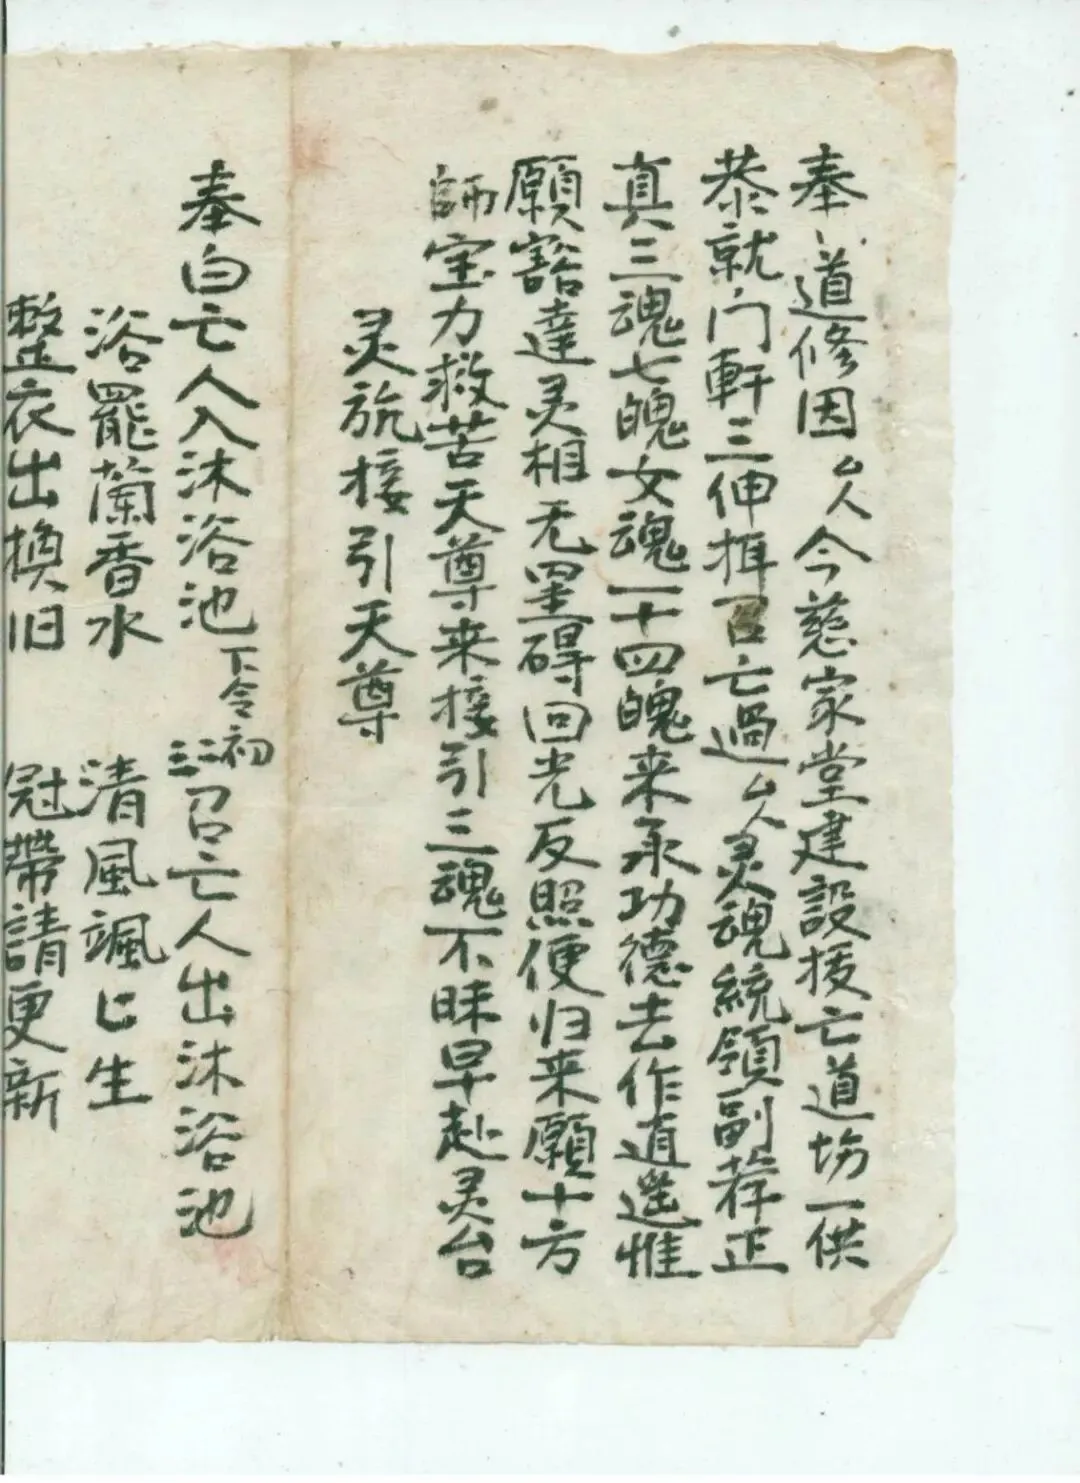 奉道修因厶人今慈家堂建設拔亡道场一供
恭就门軒三伸揖召亡過厶人灵魂統領副荐正
真三魂七魄女魂一十四魄来承功德去作逍遥惟
願豁達灵相无罣碍回光反照便归来願十方
師宝力救苦天尊来接引三魂不昧早赴灵台
灵旐接引天尊
奉白亡人入沐浴池下令初二三召亡人出沐浴池
浴罷蘭香水 清風颯上生
整衣出換旧 冠帶請更新